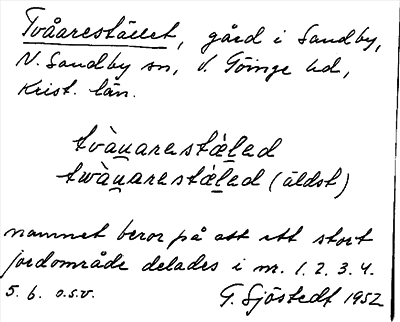 Tvåarestället, gård i Sandby,
N. Sandby sn, V. Göinge hd,
Krist. län.
tvàu̲arestä́l̲ed
twàu̲arestä́l̲ed (äldst)
namnet beror på att ett stort
jordområde delades i nr. 1. 2. 3. 4.
5. 6. o.s.v. G. Sjöstedt 1952